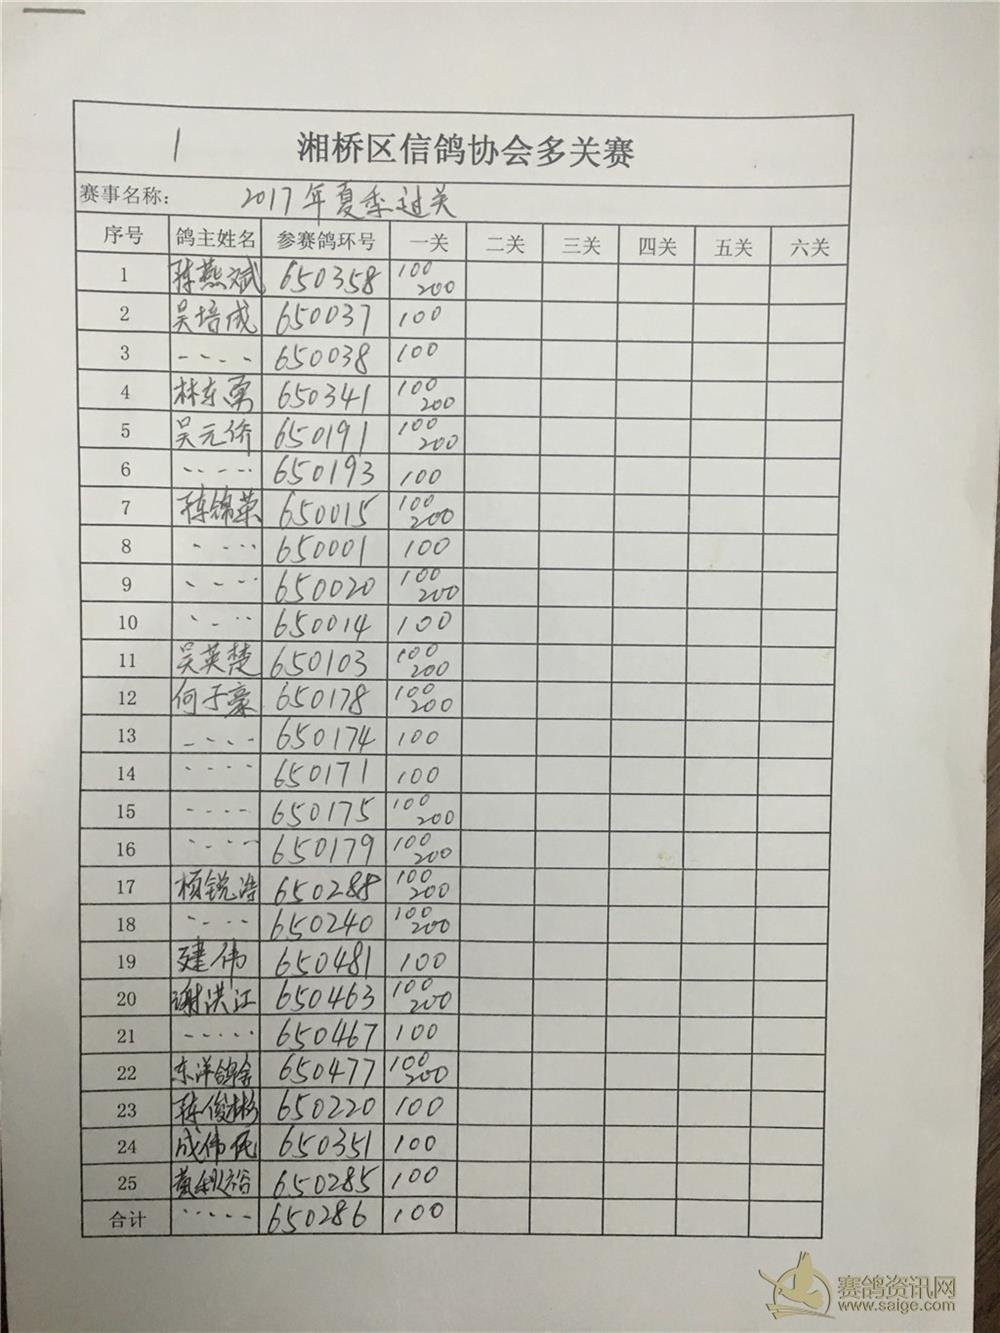 1 湘桥区信鸽协会多关赛
赛事名称: 2017年夏季过关
序号 鸽主姓名 参赛鸽环号 一关 二关 三关 四关 五关 六关
1 陈燕斌 650358 100 200
2 吴培成 650037 100
3 ---- 650038 100
4 林东勇 650341 100 200
5 吴元侨 650191 100 200
6 ---- 650193 100
7 陈锦荣 650015 100 200
8 ---- 650001 100
9 ---- 650020 100 200
10 ---- 650014 100
11 吴英楚 650103 100 200
12 何子豪 650178 100 200
13 ---- 650174 100
14 ---- 650171 100
15 ---- 650175 100 200
16 ---- 650179 100 200
17 杨锐浩 650288 100 200
18 ---- 650240 100 200
19 建伟 650481 100
20 谢洪江 650463 100 200
21 ----- 650467 100
22 东洋鸽舍 650477 100 200
23 陈俊彬 650220 100
24 成伟民 650351 100
25 黄利裕 650285 100
合计 ----- 650286 100
赛鸽资讯网
www.saige.com